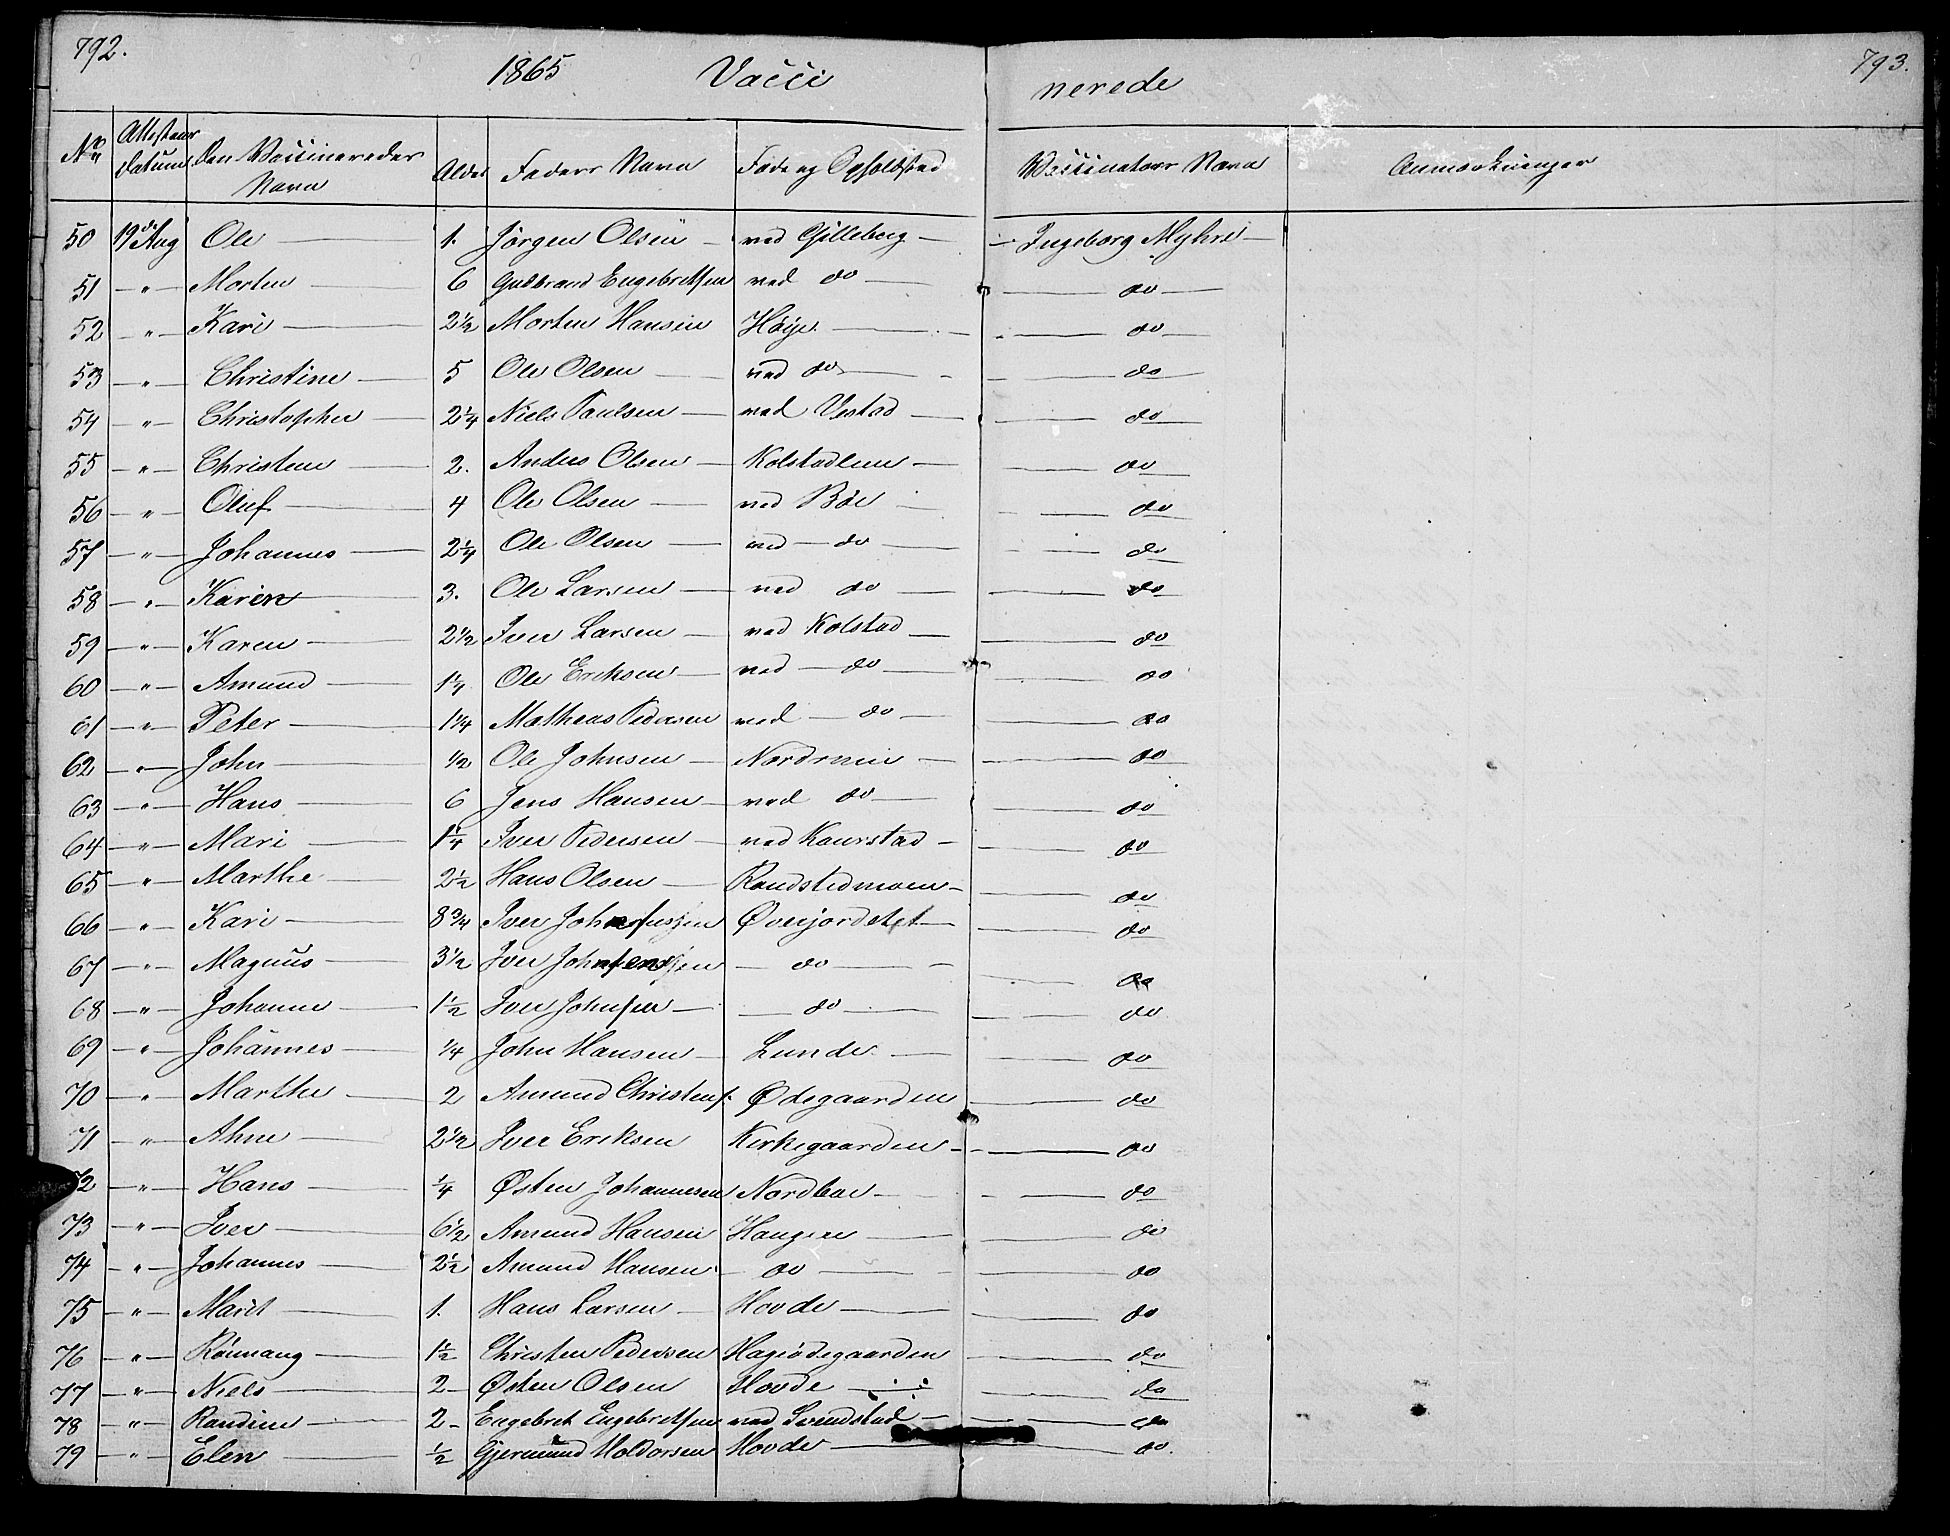 792.
1865 Vacci nerede
793.
No Attestens Datum den Vaccineredes Navn Alder Faders Navn Føde og Opholdsted Vaccinators Navn Anmærkninger
50 19de Aug Ole 1. Jörgen Olsen ved Gilleberg Ingeborg Myhre
51 " Morten 6 Gulbrand Engebretsen ved do do
52 " Kari 2 1/2 Morten Hansen Höye do
53 " Christine 5 Ole Olsen ved do do
54 " Christopher 2 1/4 Niels Paulsen ved Vestad do
55 " Christen 2. Anders Olsen Kolstadeie do
56 " Oluf 4 Ole Olsen ved Böe do
57 " Johannes 2 1/4 Ole Olsen ved do do
58 " Karen 3. Ole Larsen ved do do
59 " Karen 2 1/2 Iver Larsen ved Kolstad do
60 " Amund 1 1/4 Ole Eriksen ved do do
61 " Peter 1 1/4 Matheas Pedersen ved do do
62 " John 1/2 Ole Johnsen Nordrum do
63 " Hans 6 Jens Hansen ved do do
64 " Mari 1 1/4 Iver Pedersen ved Kaurstad do
65 " Marthe 2 1/2 Hans Olsen Randstedmoen do
66 " Kari 8 3/4 Iver Johnsen Øverjordetet do
67 " Magnus 3 1/2 Iver Johnsen do do
68 " Johanne 1 1/2 Iver Johnsen do do
69 " Johannes 1/4 John Hansen Lunde do
70 " Marthe 2 Amund Christens: Ødegaarden do
71 " Ahne 2 1/2 Iver Eriksen Kirkegaarden do
72 " Hans 1/4 Østen Johannesen Nordbae do
73 " Iver 6 1/2 Amund Hansen Haugen do
74 " Johannes 2 1/2 Amund Hansen do do
75 " Marit 1. Hans Larsen Hovde do
76 " Rönnaug 1 1/2 Christen Pedersen Hageödegaarden do
77 " Niels 2 Østen Olsen Hovde do
78 " Randine 2 Engebret Engebretsen ved Svendstad do
79 " Elen 1/2 Gjermund Holdorsen Hovde do